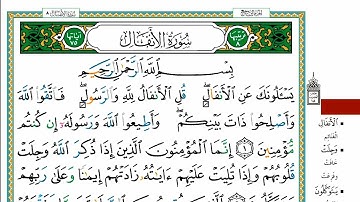 سُورَةُ الأَنفَال
بِسْمِ ٱللَّهِ ٱلرَّحْمَٰنِ ٱلرَّحِيمِ
يَسْـَٔلُونَكَ عَنِ ٱلْأَنفَالِ ۖ قُلِ ٱلْأَنفَالُ لِلَّهِ وَٱلرَّسُولِ ۖ فَٱتَّقُوا۟ ٱللَّهَ
وَأَصْلِحُوا۟ ذَاتَ بَيْنِكُمْ ۖ وَأَطِيعُوا۟ ٱللَّهَ وَرَسُولَهُۥٓ إِن كُنتُم
مُّؤْمِنِينَ ١ إِنَّمَا ٱلْمُؤْمِنُونَ ٱلَّذِينَ إِذَا ذُكِرَ ٱللَّهُ وَجِلَتْ
قُلُوبُهُمْ وَإِذَا تُلِيَتْ عَلَيْهِمْ ءَايَٰتُهُۥ زَادَتْهُمْ إِيمَٰنًا وَعَلَىٰ رَبِّهِمْ
الأَنفَالِ
وَجِلَتْ
يَتَوَكَّلُونَ